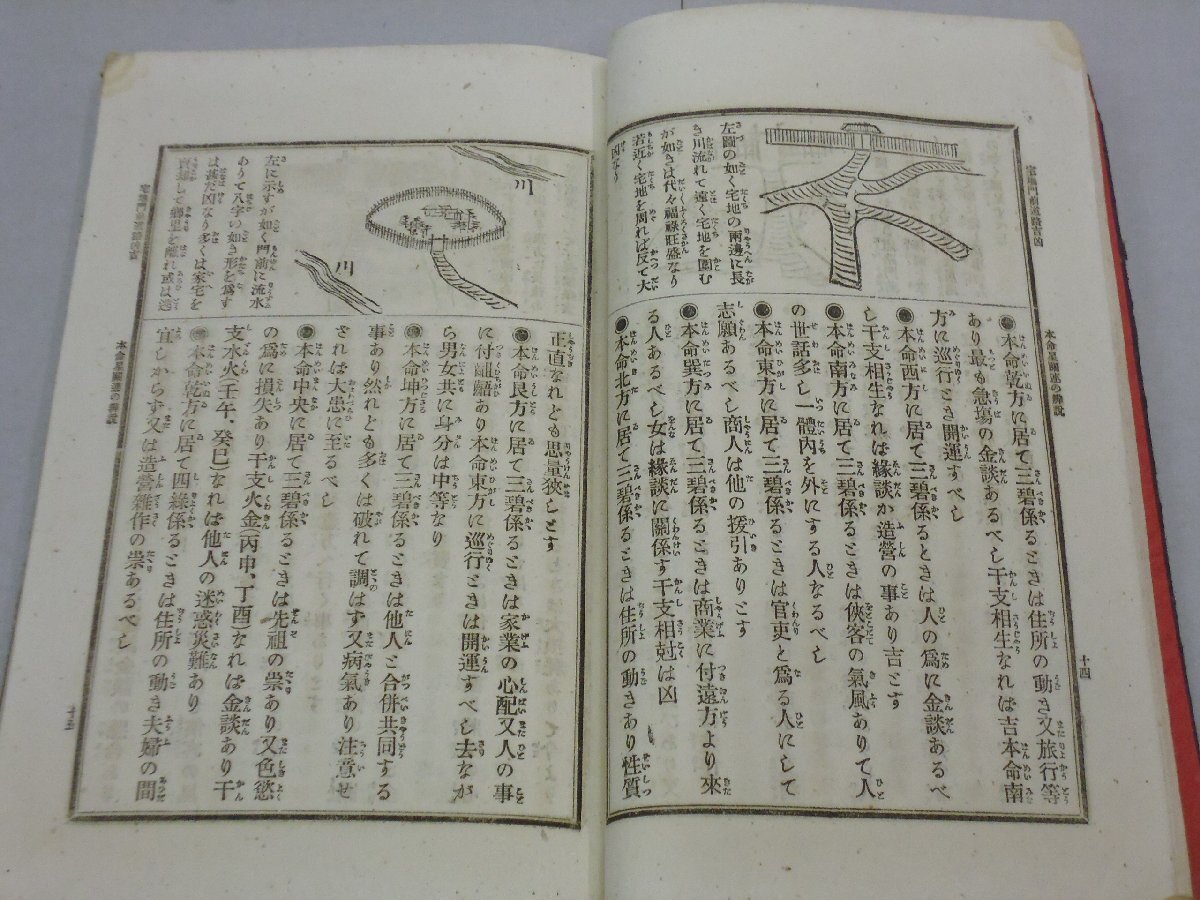 左圖の如く宅地の兩邊に長
き川流れて遠く宅地を圍む
が如きは代々福祿旺盛なり
若近く宅地を周れば反て大
凶なり
●本命乾方に居て三碧係るときは住所の動き又旅行等
あり最も急塲の金談あるべし干支相生なれは吉本命南
方に巡行とき開運すべし
●本命西方に居て三碧係るときは人の爲に金談あるべ
し干支相生なれは緣談か造營の事あり吉とす
●本命南方に居て三碧係るときは俠客の氣風ありて人
の世話多し一體內を外にする人なるべし
●本命東方に居て三碧係るときは官吏と爲る人にして
志願あるべし商人は他の援引ありとす
●本命巽方に居て三碧係るときは商業に付遠方より來
る人あるべし女は緣談に關係す干支相尅は凶
●本命北方に居て三碧係るときは住所の動きあり性質
本命星開運の辨說
十四
川
川
左に示すが如く門前に流水
ありて八字の如き形を爲す
は甚だ凶なり多くは家宅を
賣却して鄉里を離れ或は逃
正直なれども思量狹しとす
●本命艮方に居て三碧係るときは家業の心配又人の事
に付齟齬あり本命東方に巡行ときは開運すべし去なが
ら男女共に身分は中等なり
●本命坤方に居て三碧係るときは他人と合併共同する
事あり然れども多くは破れて調はず又病氣あり注意せ
されは大患に至るべし
●本命中央に居て三碧係るときは先祖の祟あり又色慾
の爲に損失あり干支火金(丙申、丁酉)なれは金談あり干
支水火(壬午、癸巳)なれは他人の迷惑災難あり
●本命乾方に居て四綠係るときは住所の動き夫婦の間
宜しからす又は造營雜作の祟あるべし
本命星開運の辨說